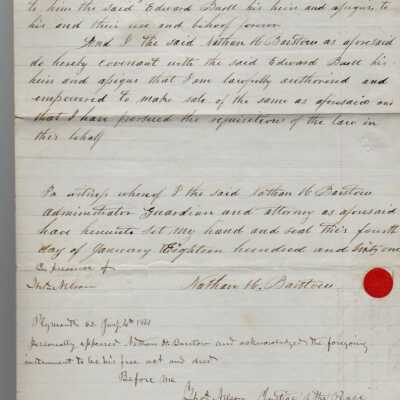 to him the said Edward Buell his heir and assigns to
his and their use and behoof forever
And I the said Nathan H. Barstow as aforesaid
do hereby covenant with the said Edward Buell his
heir and assigns that I am lawfully authorized and
empowered to make sale of the same as aforesaid and
that I have pursued the requisitions of the law in
this behalf
In witness whereof I the said Nathan H. Barstow
Administrator Guardian and attorney as aforesaid
have hereunto set my hand and seal this fourth
day of January Eighteen hundred and Sixty one
In presence of
Nelson
Nathan H. Barstow
Plymouth ss. Jany 4th 1861
personally appeared Nathan H. Barstow and acknowledged the foregoing
instrument to be his free act and deed
Before me
Nelson Justice of the Peace